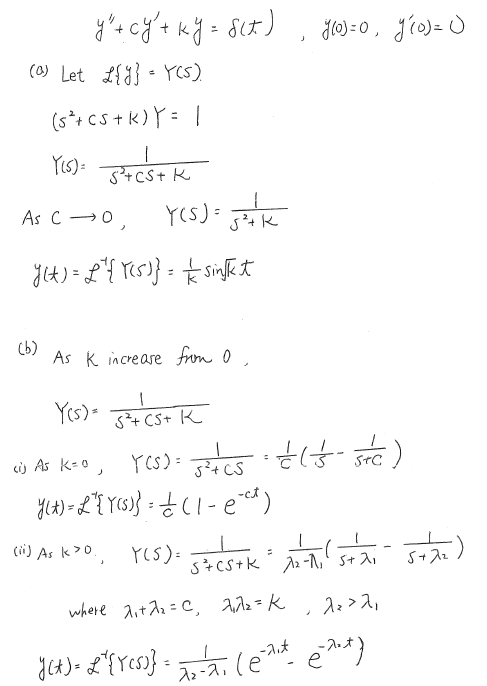 y'' + cy' + ky = δ(t) , y(0)=0, y'(0)=0
(a) Let ℒ{y} = Y(s)
(s²+cs+k)Y = 1
Y(s) = 1/(s²+cs+k)
As c → 0, Y(s) = 1/(s²+k)
y(t) = ℒ⁻¹{Y(s)} = 1/k sin√k t
(b) As k increase from 0,
Y(s) = 1/(s²+cs+k)
(i) As k=0, Y(s) = 1/(s²+cs) = 1/c (1/s - 1/(s+c))
y(t) = ℒ⁻¹{Y(s)} = 1/c (1-e^(-ct))
(ii) As k>0., Y(s) = 1/(s²+cs+k) = 1/(λ₂-λ₁) (1/(s+λ₁) - 1/(s+λ₂))
where λ₁+λ₂ = c, λ₁λ₂ = k , λ₂ > λ₁
y(t) = ℒ⁻¹{Y(s)} = 1/(λ₂-λ₁) (e^(-λ₁t) - e^(-λ₂t))